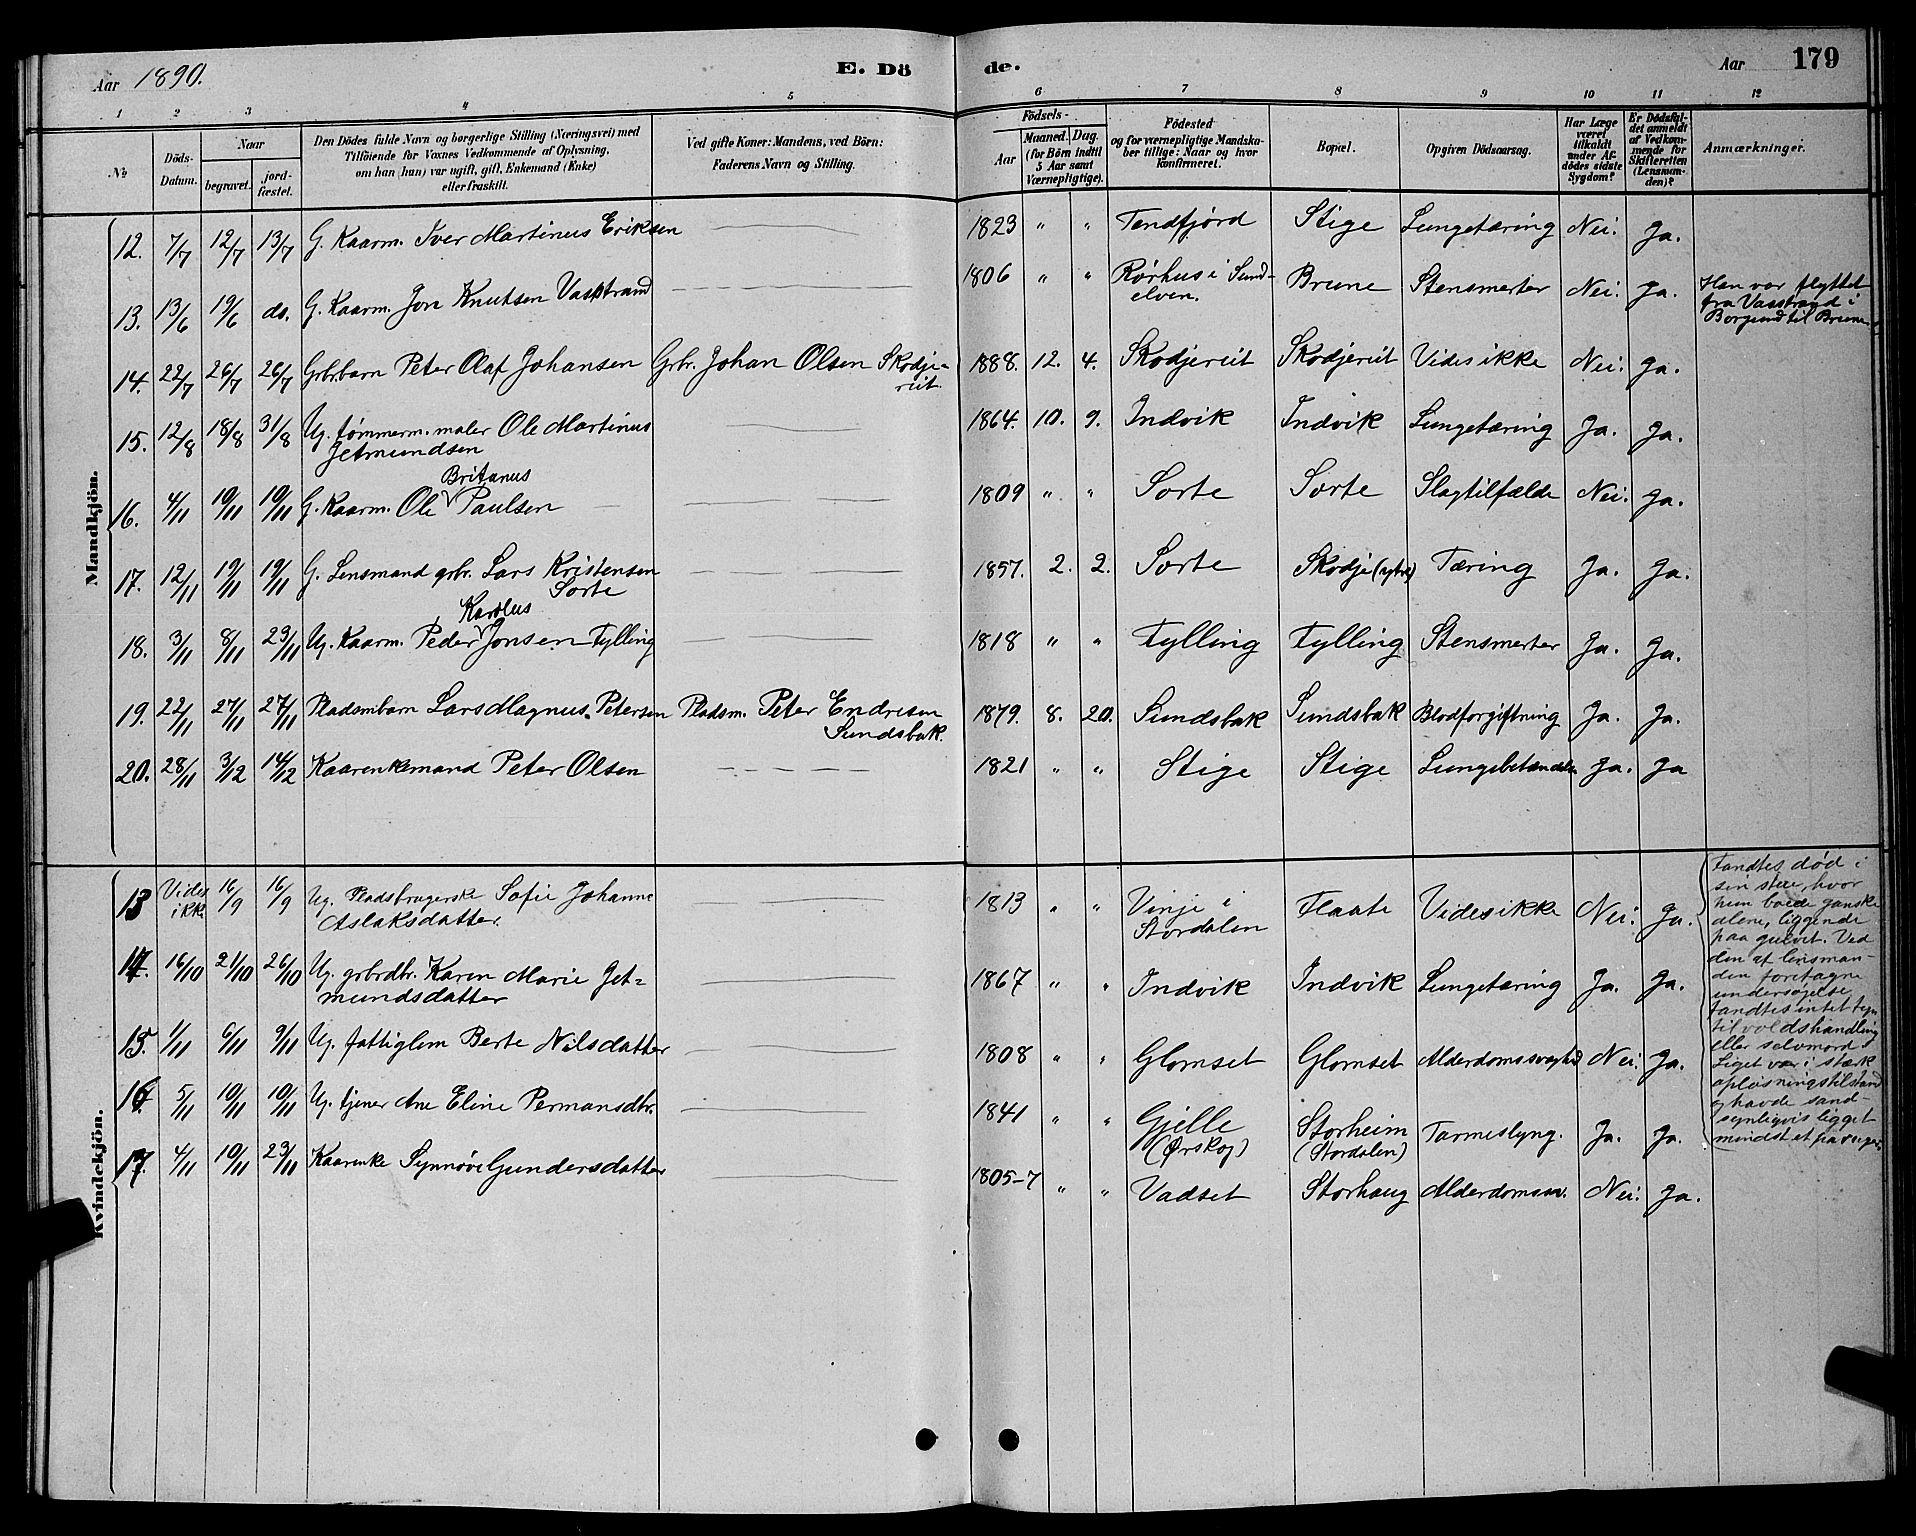 Aar 1890.
E. Dö
de.
Aar 179
1 2 3 4 5 6 7 8 9 10 11 12
No
Döds-Datum.
Naar
begravet.
jord-fæstet.
Den Dödes fulde Navn og borgerlige Stilling (Næringsvei) med
Tilföiende for Voxnes Vedkommende af Oplysning,
om han (hun) var ugift, gift, Enkemand (Enke)
eller fraskilt.
Ved gifte Koner: Mandens, ved Börn:
Faderens Navn og Stilling.
Födsels-
Aar
Maaned. Dag.
(for Börn indtil
5 Aar samt
Værnepligtige).
Födested
og for værnepligtige Mandska-
ber tillige: Naar og hvor
konfirmeret.
Bopæl.
Opgiven Dödsaarsag.
Har Læge
været
tilkaldt
under Af-
dödes sidste
Sygdom?
Er Dödsfal-
det anmeldt
af Vedkom-
mende for
Skifteretten
(Lensman-
den)?
Anmærkninger.
Mandkjön.
12. 7/7 12/7 13/7 G. Kaarm. Iver Martinus Eriksen 1823 " " Tendfjord Stige Lungetæring Nei. Ja.
13. 13/6 19/6 do. G. Kaarm. Jon Knutsen Vasstrand 1806 " " Rörhus i Sund-
elven. Brune Stensmerter Nei. Ja. Han var flyttet
fra Vasstrand i
Borgund til Brune.
14. 22/7 26/7 26/7 Grbr.barn Peter Olaf Johansen Grbr. Johan Olsen Skodje-
reit. 1888. 12. 4. Skodjereit Skodjereit Vides ikke Nei. Ja.
15. 12/8 18/8 31/8 Ug. tömmerm. maler Ole Martinus
Jetmundsen 1864. 10. 9. Indvik Indvik Lungetæring Ja. Ja.
Britanus
16. 4/11 10/11 10/11 G. Kaarm. Ole Paulsen 1809 " " Sorte Sorte Slagtilfælde Nei. Ja.
17. 12/11 19/11 19/11 G. Lensmand grbr. Lars Kristensen
Sorte 1857. 2. 2. Skodje Tæring Ja. Ja.
Karolus
18. 3/11 8/11 23/11 Ug. Kaarm. Peder Jonsen Fylling 1818 " " Fylling Fylling Stensmerter Ja. Ja.
19. 22/11 27/11 27/11 Pladsmbarn Lars Magnus Petersen Pladsm. Peter Endresen
Sundsbak. 1879. 8. 20. Sundsbak Sundsbak Blodforgiftning Ja. Ja.
20. 28/11 3/12 14/12 Kaarenkemand Peter Olsen 1821 " " Stige Stige Lungebetændelse Ja. Ja
Kvindekjön.
13 Vides
ikke 16/9 16/9 Ug. Pladsbrugerske Sofie Johanne
Aslaksdatter. 1813 " " Vinje i
Stordalen Flaate Vides ikke Nei. Ja.
Fandtes död i
sin stue, hvor
hun boede ganske
alene, liggende
paa gulvet. Ved
den af lensman-
den foretagne
undersögelse
fandtes intet tegn
til voldshandling
eller selvmord.
Liget var i stærk
oplösningstilstand
og havde sand-
synligvis ligget
mindst et par uger.
14. 16/10 21/10 26/10 Ug. grbrdtr. Karen Marie Jet-
mundsdatter 1867 " " Indvik Indvik Lungetæring Ja. Ja.
15. 1/11 6/11 9/11 Ug. fattiglem Berte Nilsdatter 1808 " " Glomset Glomset Alderdomssvaghed Nei. Ja.
16 5/11 10/11 10/11 Ug. tjener Ane Eline Permansdtr. 1841 " " Gjelle
(Ørskog) Storheim
(Stordalen) Tarmeslyng. Ja. Ja.
17. 4/11 10/11 23/11 Kaarenke Synnöve Gundersdatter 1805-7 " " Vadset Storhaug Alderdomssv. Nei. Ja.